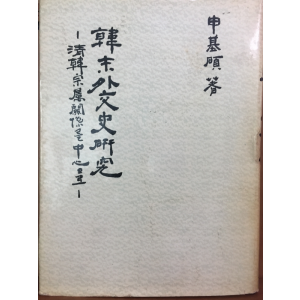 申基碩著
韓末外交史硏究
－淸韓宗屬關係를 中心으로－